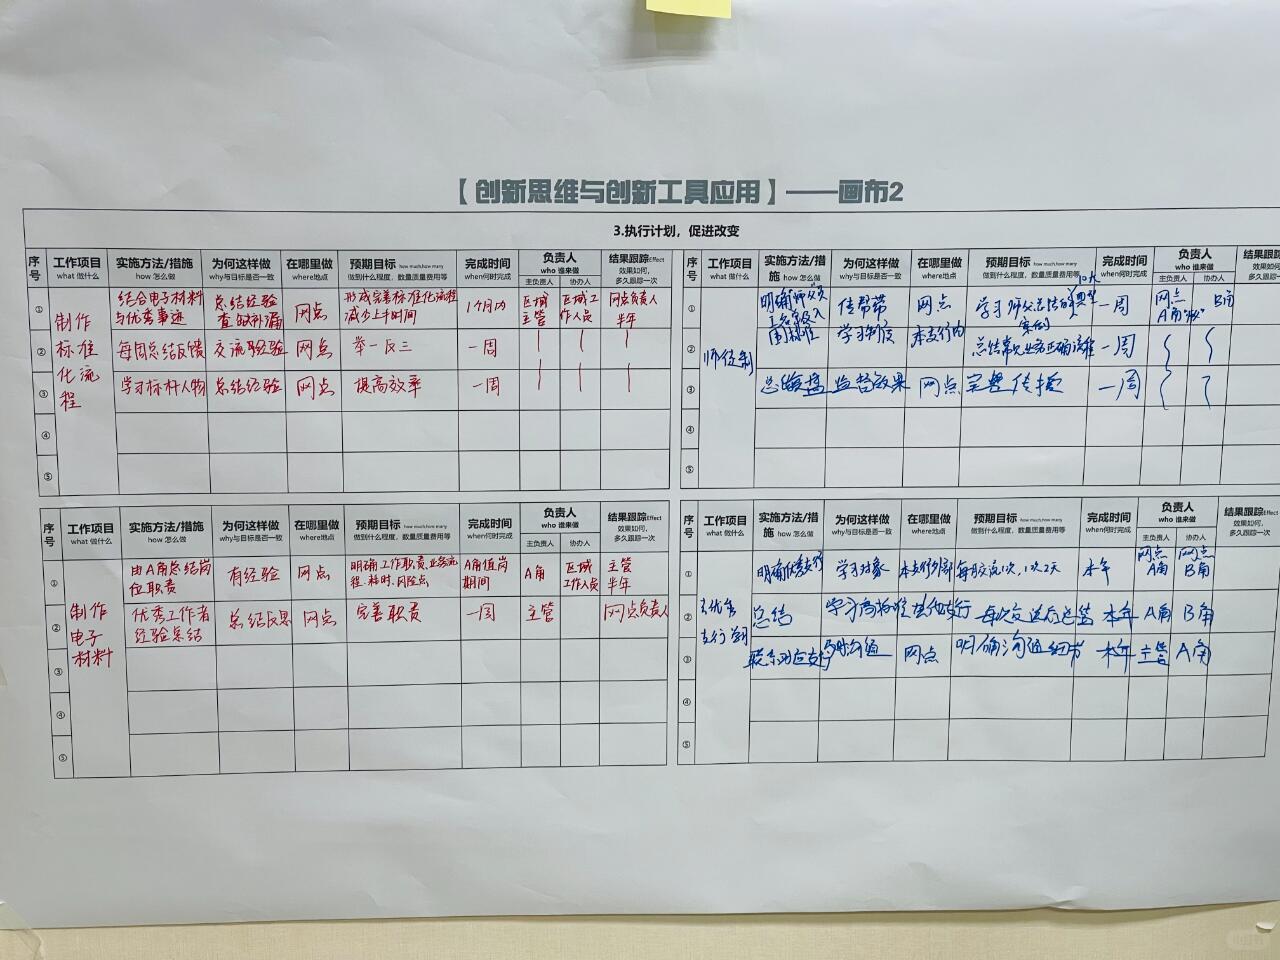 【创新思维与创新工具应用】——画布2
3.执行计划，促进改变
序号 工作项目 what 做什么 实施方法/措施 how 怎么做 为何这样做 why与目标是否一致 在哪里做 where地点 预期目标 how much,how many 做到什么程度，数量质量费用等 完成时间 when何时完成 负责人 who 谁来做 主负责人 协办人 结果跟踪Effect 效果如何，多久跟踪一次
制作标准化流程
① 结合电子材料与优秀事迹 总结经验查缺补漏 网点 形成完善标准化流程减少上手时间 1个月内 区域主管 区域工作人员 网点负责人半年
② 每周总结反馈 交流经验 网点 举一反三 一周
③ 学习标杆人物 总结经验 网点 提高效率 一周
④
⑤
序号 工作项目 what 做什么 实施方法/措施 how 怎么做 为何这样做 why与目标是否一致 在哪里做 where地点 预期目标 how much,how many 做到什么程度，数量质量费用等 完成时间 when何时完成 负责人 who 谁来做 主负责人 协办人 结果跟踪Effect 效果如何，多久跟踪一次
师徒制
① 明确师父 传帮带 网点 学习师父总结的典型案例 一周 网点A角 B角
② 学习制度 本支行内 总结常见业务正确流程 一周
③ 监督效果 网点 完整传授 一周
④
⑤
序号 工作项目 what 做什么 实施方法/措施 how 怎么做 为何这样做 why与目标是否一致 在哪里做 where地点 预期目标 how much,how many 做到什么程度，数量质量费用等 完成时间 when何时完成 负责人 who 谁来做 主负责人 协办人 结果跟踪Effect 效果如何，多久跟踪一次
制作电子材料
① 由A角总结岗位职责 有经验 网点 明确工作职责、业务流程、耗时、风险点 A角值岗期间 A角 区域工作人员 主管半年
② 优秀工作者经验总结 总结反思 网点 完善职责 一周 主管 网点负责人
③
④
⑤
序号 工作项目 what 做什么 实施方法/措施 how 怎么做 为何这样做 why与目标是否一致 在哪里做 where地点 预期目标 how much,how many 做到什么程度，数量质量费用等 完成时间 when何时完成 负责人 who 谁来做 主负责人 协办人 结果跟踪Effect 效果如何，多久跟踪一次
① 明确优秀支行 学习对象 每月交流1次，1次2天 本年 网点A角 网点B角
② 总结 学习高标准 本年 A角 B角
③ 联系对应支行 及时沟通 网点 明确沟通细节 本年 主管 A角
④
⑤